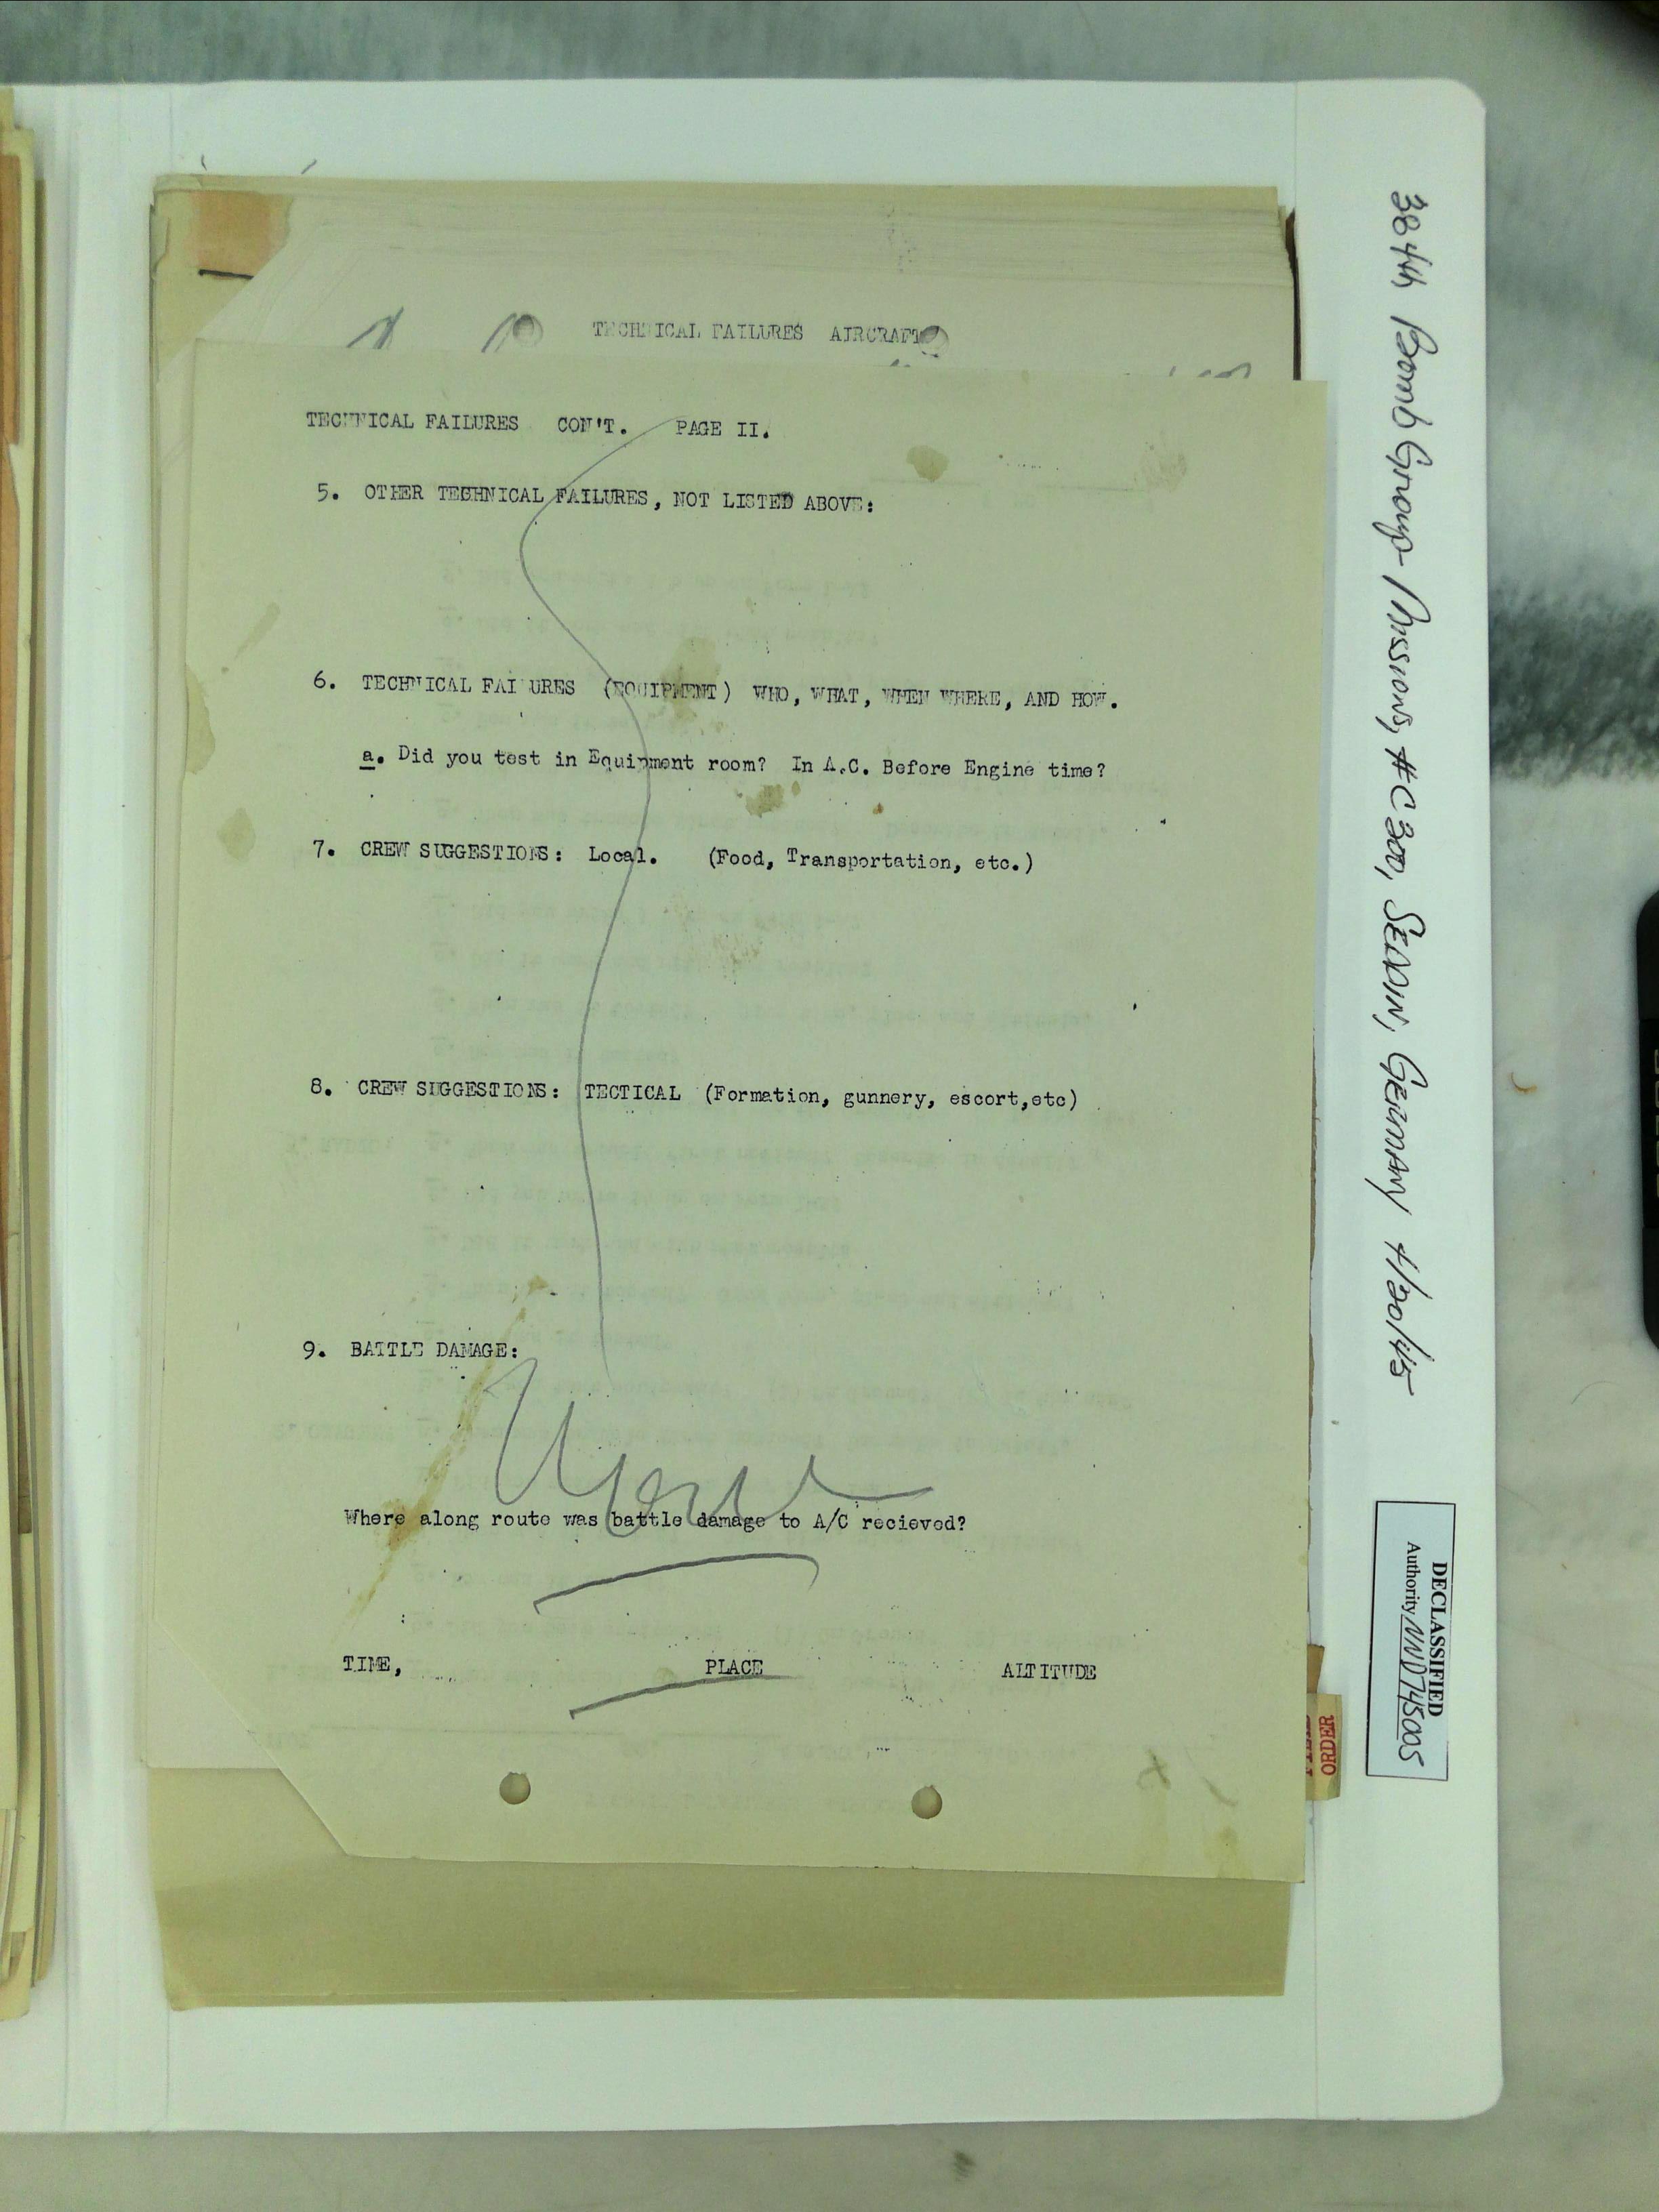 TECHNICAL FAILURES AIRCRAFT
TECHNICAL FAILURES CON'T. PAGE II.
5. OTHER TECHNICAL FAILURES, NOT LISTED ABOVE:
6. TECHNICAL FAILURES (EQUIPMENT) WHO, WHAT, WHEN WHERE, AND HOW.
a. Did you test in Equipment room? In A.C. Before Engine time?
7. CREW SUGGESTIONS: Local. (Food, Transportation, etc.)
8. CREW SUGGESTIONS: TECTICAL (Formation, gunnery, escort,etc)
9. BATTLE DAMAGE:
None
Where along route was battle damage to A/C recieved?
TIME, PLACE ALTITUDE
384th Bomb Group - Missions, #C300, SEDDIN, GERMANY 4/20/45
DECLASSIFIED
Authority NND745005
ORDER